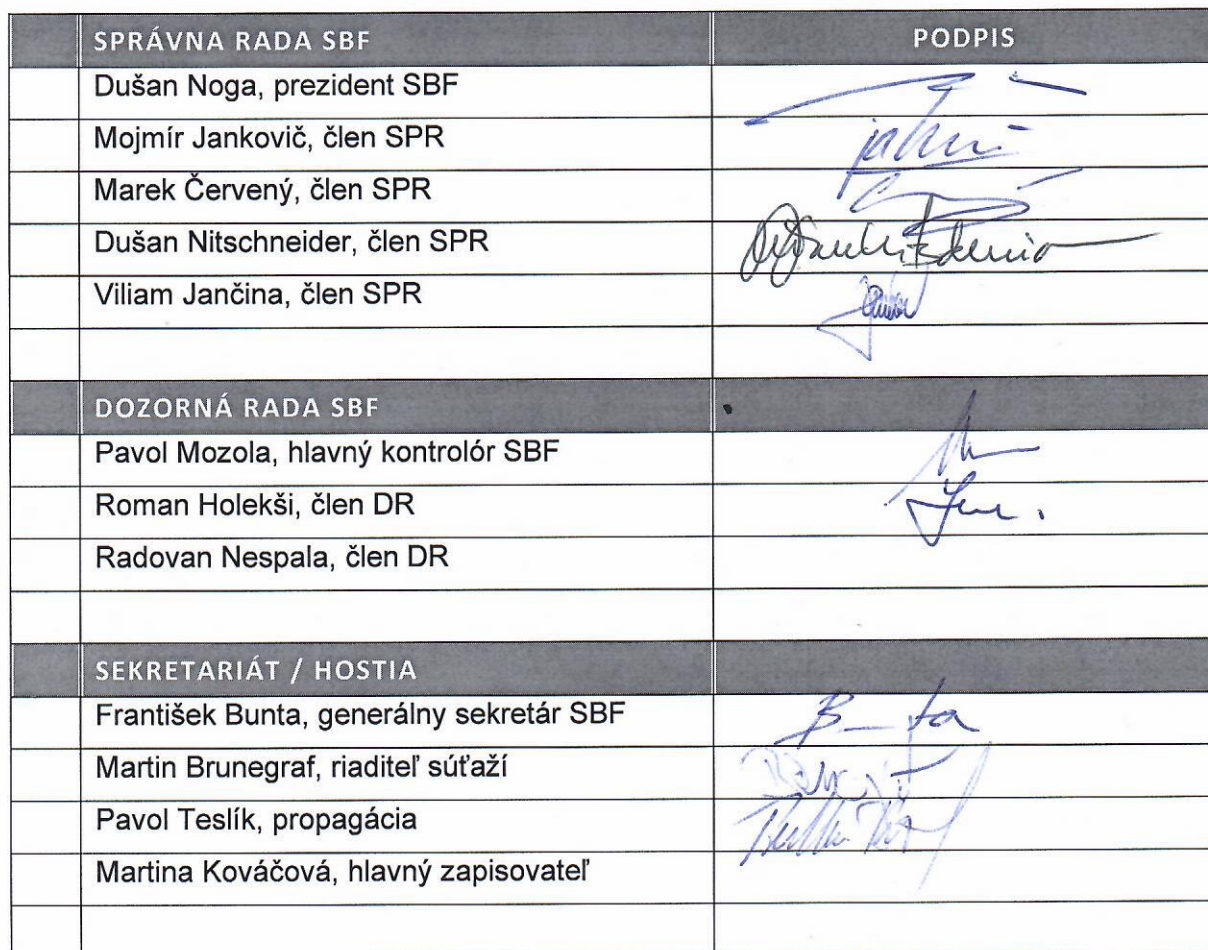 SPRÁVNA RADA SBF PODPIS
Dušan Noga, prezident SBF
Mojmír Jankovič, člen SPR
Marek Červený, člen SPR
Dušan Nitschneider, člen SPR
Viliam Jančina, člen SPR
DOZORNÁ RADA SBF
Pavol Mozola, hlavný kontrolór SBF
Roman Holekši, člen DR
Radovan Nespala, člen DR
SEKRETARIÁT / HOSTIA
František Bunta, generálny sekretár SBF
Martin Brunegraf, riaditeľ súťaží
Pavol Teslík, propagácia
Martina Kováčová, hlavný zapisovateľ